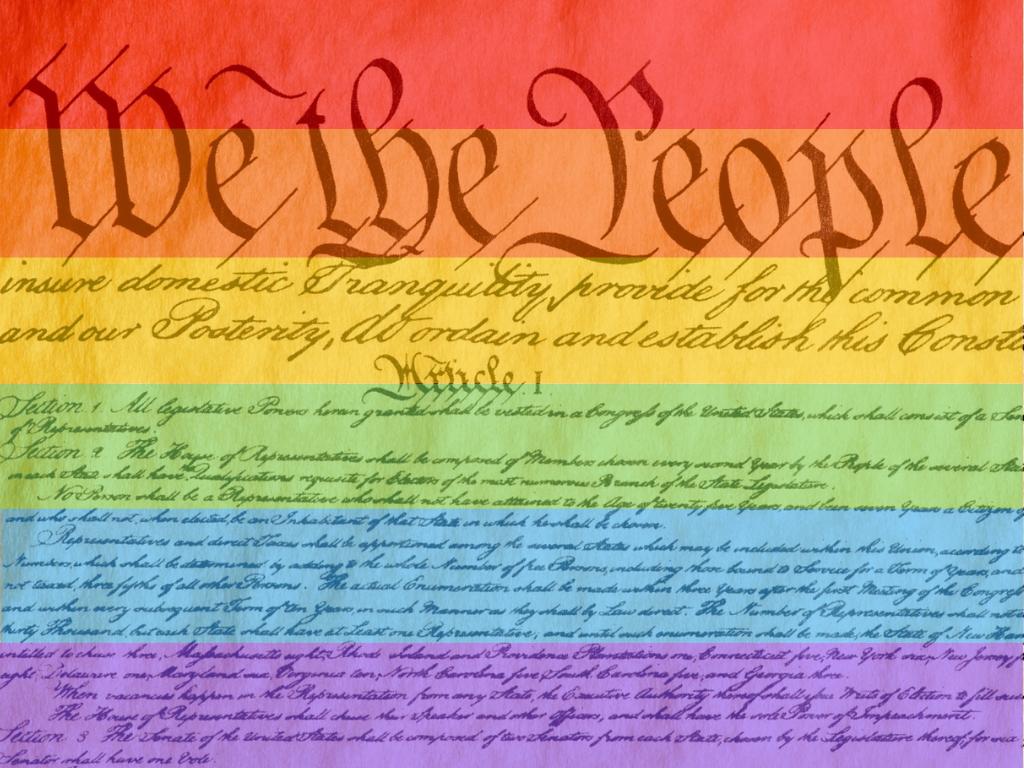 We the People
insure domestic Tranquility, provide for the common
and our Posterity, do ordain and establish this Constit
Article. I.
Section 1. All legislative Powers herein granted shall be vested in a Congress of the United States, which shall consist of a Sen
of Representatives.
Section 2. The House of Representatives shall be composed of Members chosen every second Year by the People of the several Stat
in each State shall have the Qualifications requisite for Electors of the most numerous Branch of the State Legislature.
No Person shall be a Representative who shall not have attained to the Age of twenty five Years, and been seven Years a Citizen of
and who shall not, when elected, be an Inhabitant of that State in which he shall be chosen.
Representatives and direct Taxes shall be apportioned among the several States which may be included within this Union, according to
Numbers, which shall be determined by adding to the whole Number of free Persons, including those bound to Service for a Term of Years, and
not taxed, three fifths of all other Persons. The actual Enumeration shall be made within three Years after the first Meeting of the Congress
and within every subsequent Term of ten Years, in such Manner as they shall by Law direct. The Number of Representatives shall not e
thirty Thousand, but each State shall have at Least one Representative; and until such enumeration shall be made, the State of New Ham
entitled to chuse three, Massachusetts eight, Rhode Island and Providence Plantations one, Connecticut five, New York six, New Jersey f
eight, Delaware one, Maryland six, Virginia ten, North Carolina five, South Carolina five, and Georgia three.
When vacancies happen in the Representation from any State, the Executive Authority thereof shall issue Writs of Election to fill such
The House of Representatives shall chuse their Speaker and other Officers; and shall have the sole Power of Impeachment.
Section 3. The Senate of the United States shall be composed of two Senators from each State, chosen by the Legislature thereof, for six
Senator shall have one Vote.